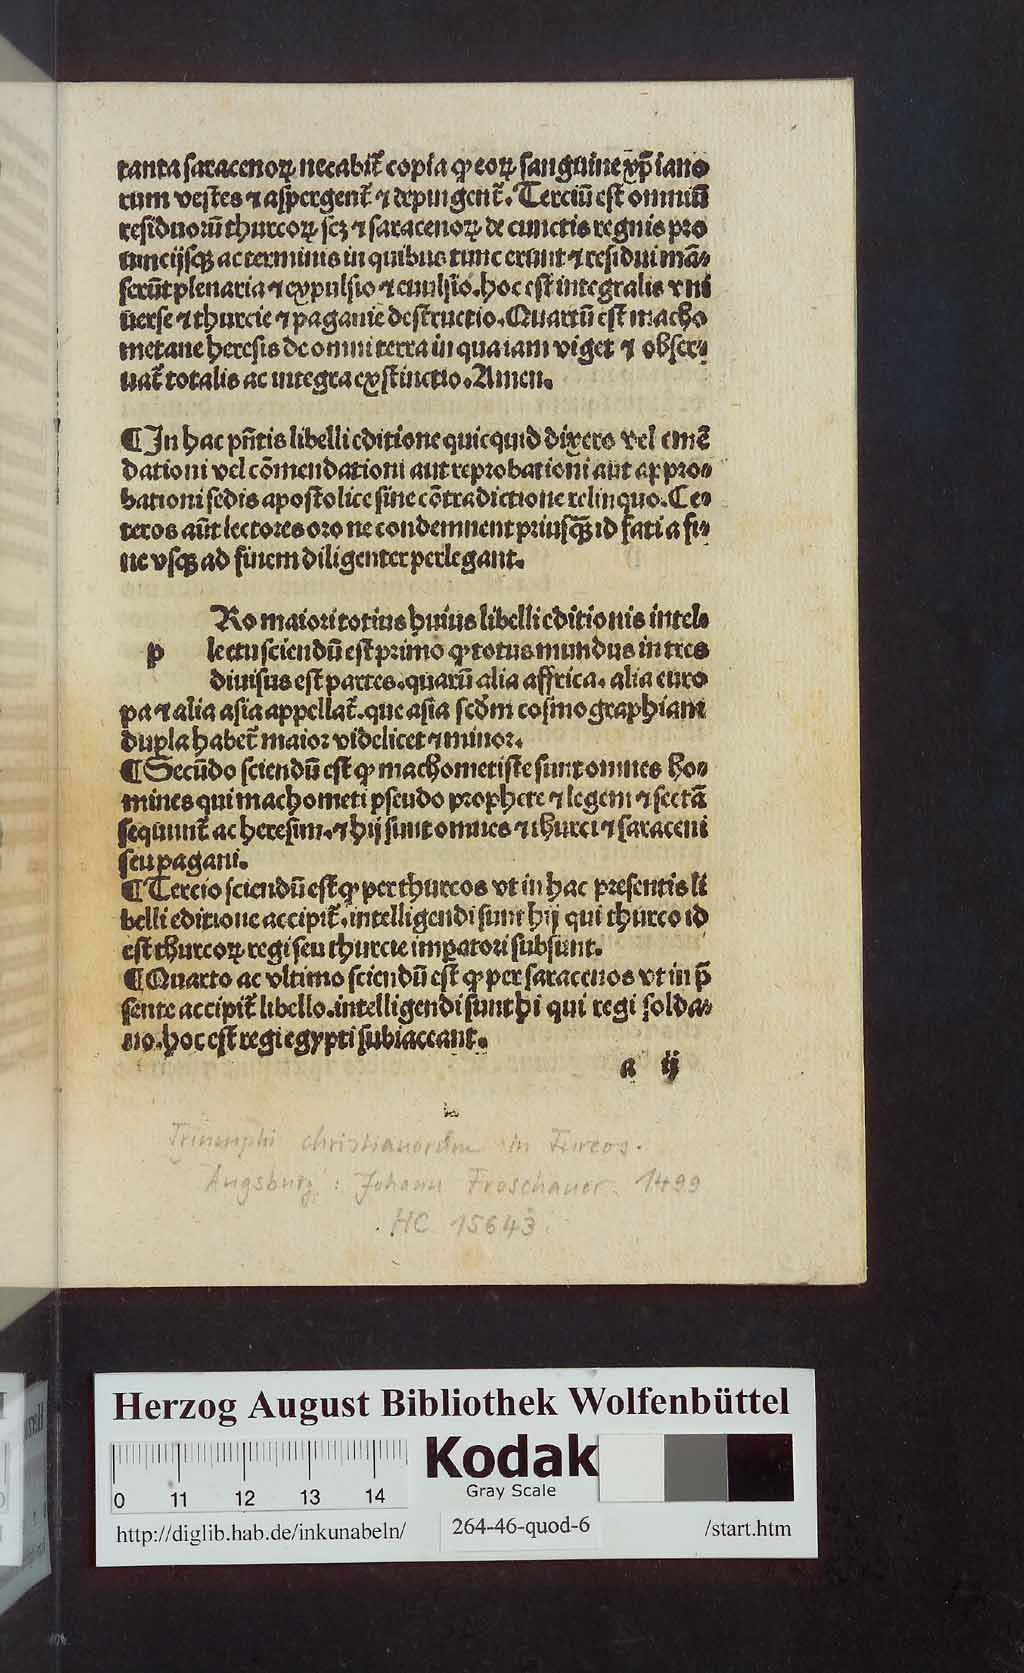 tanta saracenoꝝ necabit᷑ copia ꝙ eoꝝ sanguine xp̄iano
rum vestes ⁊ aspergent᷑ ⁊ depingent᷑. Terciū est omniū
residuorū thurcoꝝ scꝫ ⁊ saracenoꝝ de cunctis regnis pro
uincijsqꝫ ac terminis in quibus tunc erunt ⁊ residui mā⸗
serūt plenaria ⁊ expulsio ⁊ euulsio. hoc est integralis vni
uerse ⁊ thurcie ⁊ paganie destructio. Quartū est macho
metane heresis de omni terra in qua iam viget ⁊ obser⸗
uat᷑ totalis ac integra exstinctio. Amen.
¶ In hac pn̄tis libelli editione quicquid dixero vel emē
dationi vel cōmendationi aut reprobationi aut appro⸗
bationi sedis apostolice sine cōtradictione relinquo. Ce⸗
teros aūt lectores oro ne condemnent priusqꝫ̄ id fati a fi⸗
ne vsqꝫ ad finem diligenter perlegant.
p Ro maiori totius huius libelli editionis intel⸗
lectu sciendū est primo ꝙ totus mundus in tres
diuisus est partes. quarū alia affrica. alia euro
pa ⁊ alia asia appellat᷑. que asia scḋm cosmographiam
dupla habet᷑ maior videlicet ⁊ minor.
¶ Secūdo sciendū est ꝙ machometiste sunt omnes ho⸗
mines qui machometi pseudo prophete ⁊ legem ⁊ sectā
sequunt᷑ ac heresim. ⁊ hij sunt omnes ⁊ thurci ⁊ saraceni
seu pagani.
¶ Tercio sciendū est ꝙ per thurcos vt in hac presentis li
belli editione accipit᷑. intelligendi sunt hij qui thurco id
est thurcoꝝ regi seu thurcie imꝑatori subsunt.
¶ Quarto ac vltimo sciendū est ꝙ per saracenos vt in p̄
sente accipit᷑ libello. intelligendi sunt hi qui regi solda⸗
no. hoc est regi egypti subiaceant.
a ij
Triumphi christianorum in Turcos.
Augsburg: Johann Froschauer. 1499
HC 15643.
Herzog August Bibliothek Wolfenbüttel
Kodak
Gray Scale
0 11 12 13 14
http://diglib.hab.de/inkunabeln/ 264-46-quod-6 /start.htm